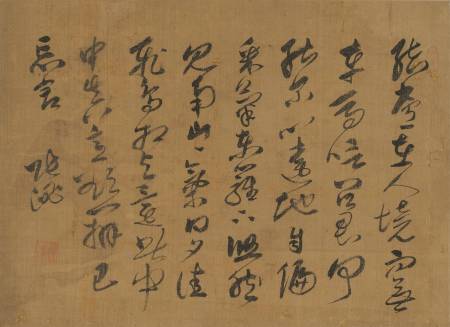 結廬在人境而無
車馬喧問君何
能爾心遠地自偏
采菊東籬下悠然
見南山々氣日夕佳
飛鳥相與還此中
有真意欲辨已
忘言